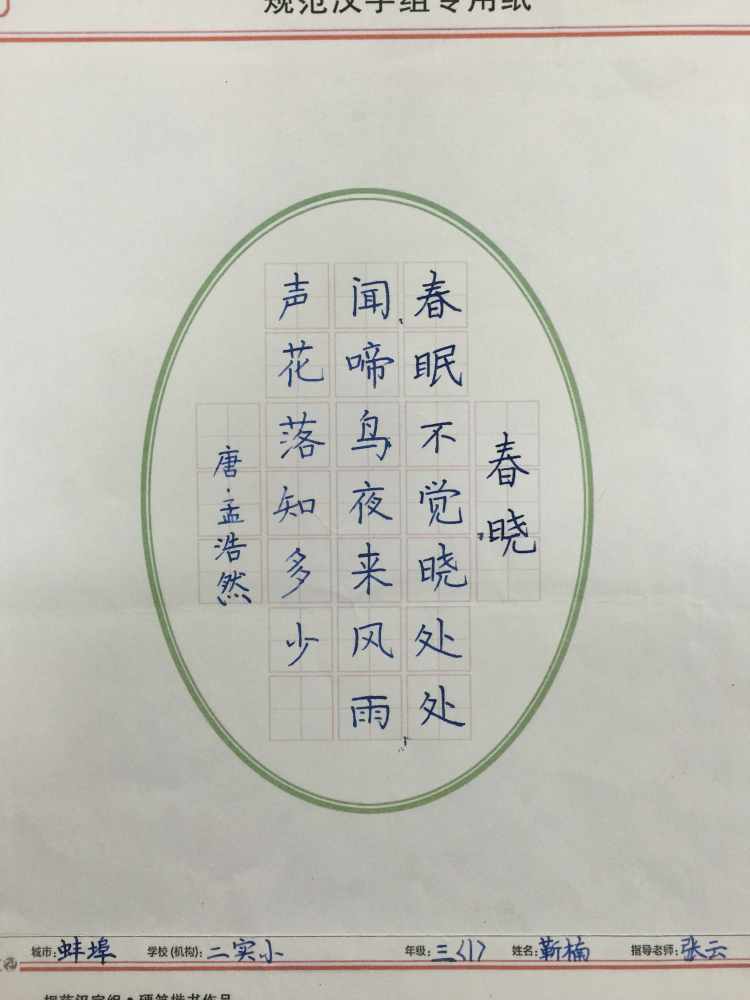 规范汉字组专用纸
春晓
春眠不觉晓处处
闻啼鸟夜来风雨
声花落知多少
唐·孟浩然
城市:蚌埠 学校(机构):二实小 年级:三〈1〉 姓名:靳楠 指导老师:张云
规范汉字组·硬笔楷书作品